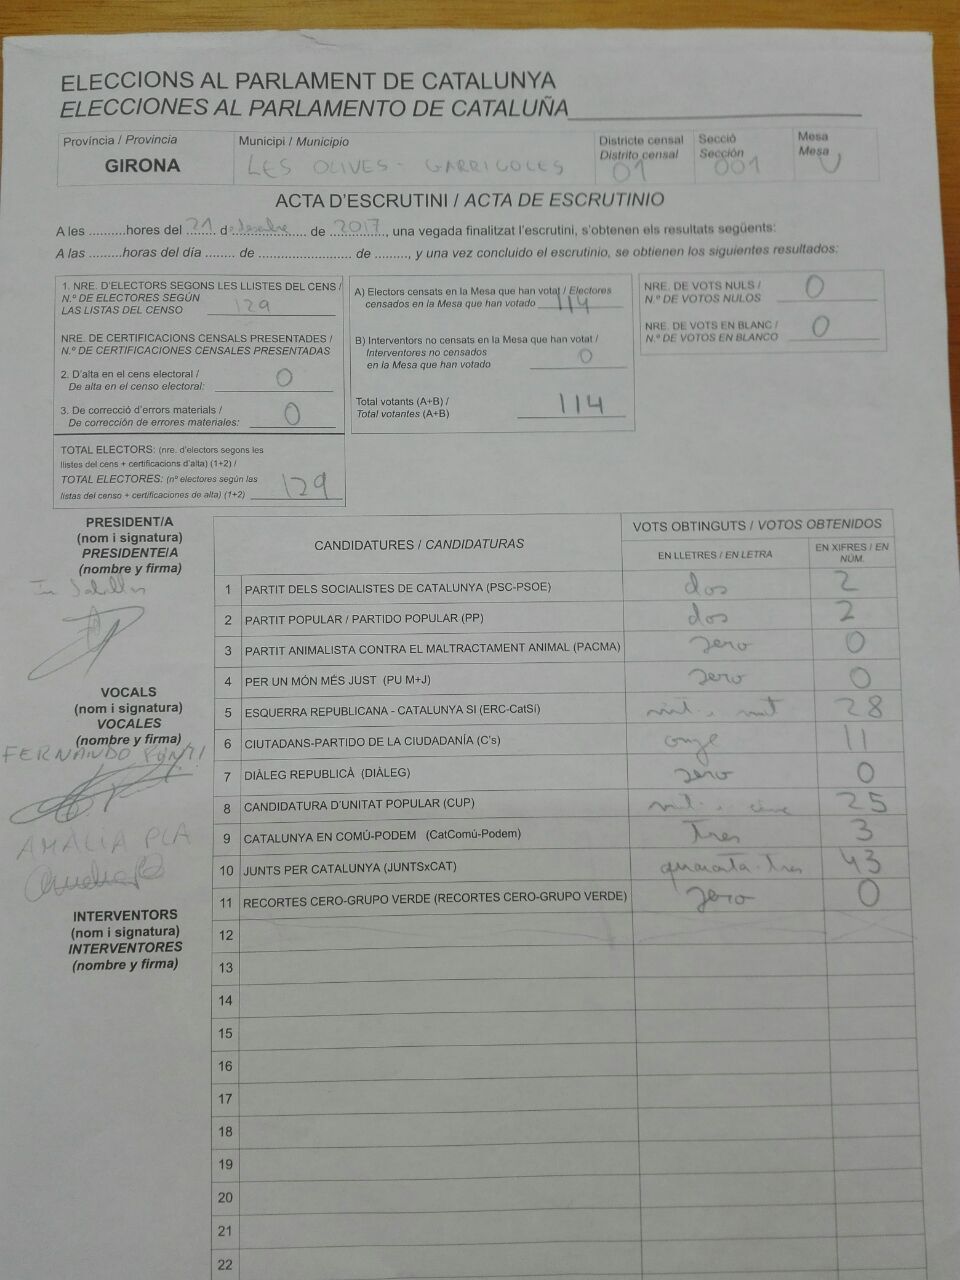 ELECCIONS AL PARLAMENT DE CATALUNYA
ELECCIONES AL PARLAMENTO DE CATALUÑA
Província / Provincia
GIRONA
Municipi / Municipio
LES OLIVES - GARRIGOLES
Districte censal
Distrito censal
01
Secció
Sección
001
Mesa
Mesa
U
ACTA D'ESCRUTINI / ACTA DE ESCRUTINIO
A les .........hores del 21 d desembre de 2017, una vegada finalitzat l'escrutini, s'obtenen els resultats següents:
A las .........horas del día ........ de ........................ de ........., y una vez concluido el escrutinio, se obtienen los siguientes resultados:
1. NRE. D'ELECTORS SEGONS LES LLISTES DEL CENS /
N.º DE ELECTORES SEGÚN
LAS LISTAS DEL CENSO 129
NRE. DE CERTIFICACIONS CENSALS PRESENTADES /
N.º DE CERTIFICACIONES CENSALES PRESENTADAS
2. D'alta en el cens electoral /
De alta en el censo electoral: 0
3. De correcció d'errors materials /
De corrección de errores materiales: 0
TOTAL ELECTORS: (nre. d'electors segons les
llistes del cens + certificacions d'alta) (1+2) /
TOTAL ELECTORES: (nº electores según las
listas del censo + certificaciones de alta) (1+2) 129
A) Electors censats en la Mesa que han votat / Electores
censados en la Mesa que han votado 114
B) Interventors no censats en la Mesa que han votat /
Interventores no censados
en la Mesa que han votado 0
Total votants (A+B) /
Total votantes (A+B) 114
NRE. DE VOTS NULS /
N.º DE VOTOS NULOS 0
NRE. DE VOTS EN BLANC /
N.º DE VOTOS EN BLANCO 0
PRESIDENT/A
(nom i signatura)
PRESIDENTE/A
(nombre y firma)
VOCALS
(nom i signatura)
VOCALES
(nombre y firma)
FERNANDO PUNTI
AMÀLIA PLA
INTERVENTORS
(nom i signatura)
INTERVENTORES
(nombre y firma)
CANDIDATURES / CANDIDATURAS
VOTS OBTINGUTS / VOTOS OBTENIDOS
EN LLETRES / EN LETRA
EN XIFRES / EN
NÚM.
1 PARTIT DELS SOCIALISTES DE CATALUNYA (PSC-PSOE) dos 2
2 PARTIT POPULAR / PARTIDO POPULAR (PP) dos 2
3 PARTIT ANIMALISTA CONTRA EL MALTRACTAMENT ANIMAL (PACMA) zero 0
4 PER UN MÓN MÉS JUST (PU M+J) zero 0
5 ESQUERRA REPUBLICANA - CATALUNYA SI (ERC-CatSí) vint-i-vuit 28
6 CIUTADANS-PARTIDO DE LA CIUDADANÍA (C's) onze 11
7 DIÀLEG REPUBLICÀ (DIÀLEG) zero 0
8 CANDIDATURA D'UNITAT POPULAR (CUP) vint-i-cinc 25
9 CATALUNYA EN COMÚ-PODEM (CatComú-Podem) tres 3
10 JUNTS PER CATALUNYA (JUNTSxCAT) quaranta-tres 43
11 RECORTES CERO-GRUPO VERDE (RECORTES CERO-GRUPO VERDE) zero 0
12
13
14
15
16
17
18
19
20
21
22